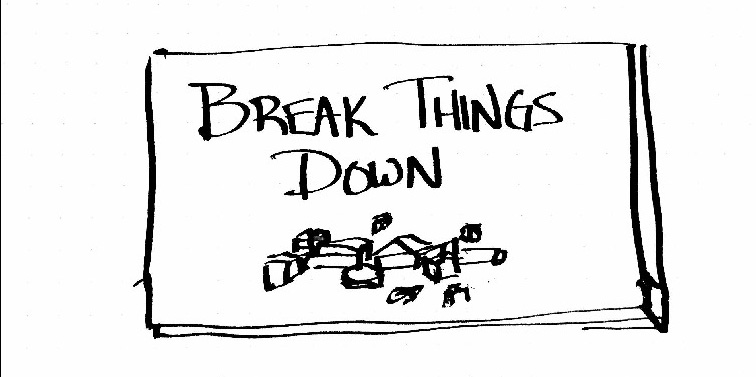 BREAK THINGS
DOWN